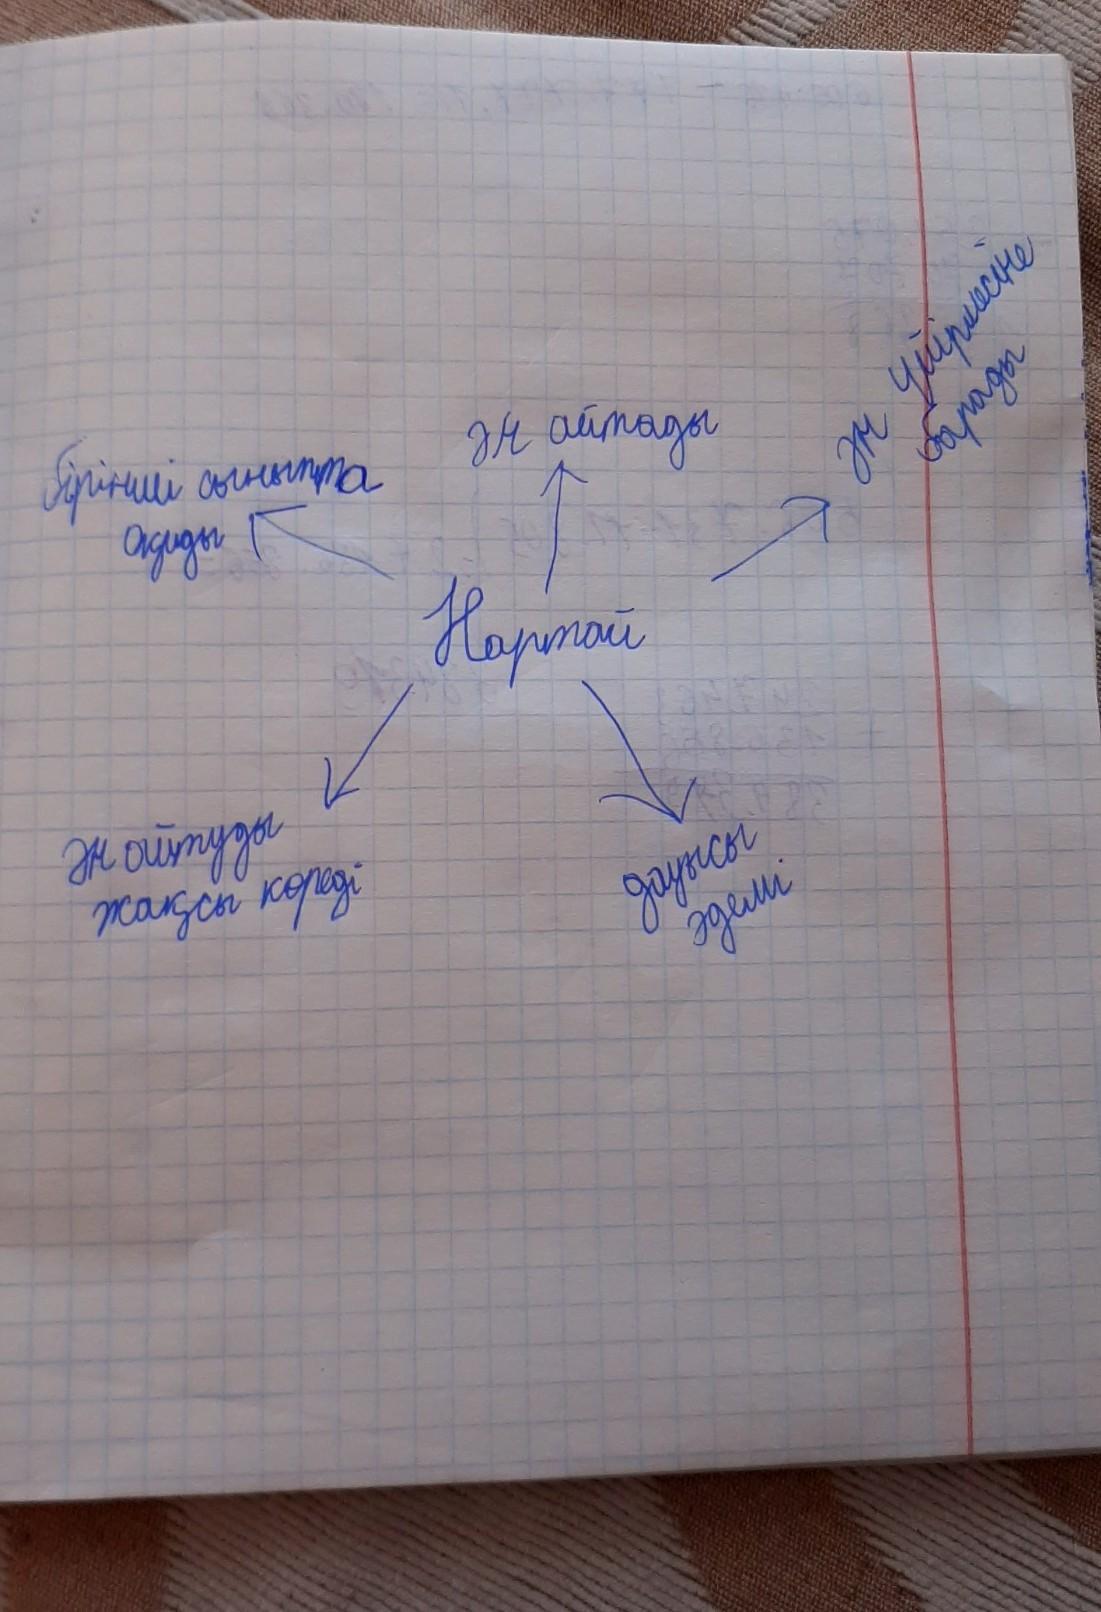 Ән айтады
Ән үйірмесіне
барады
бірінші сыныпта
оқиды
Нартай
Ән айтуды
жақсы көреді
дауысы
әдемі